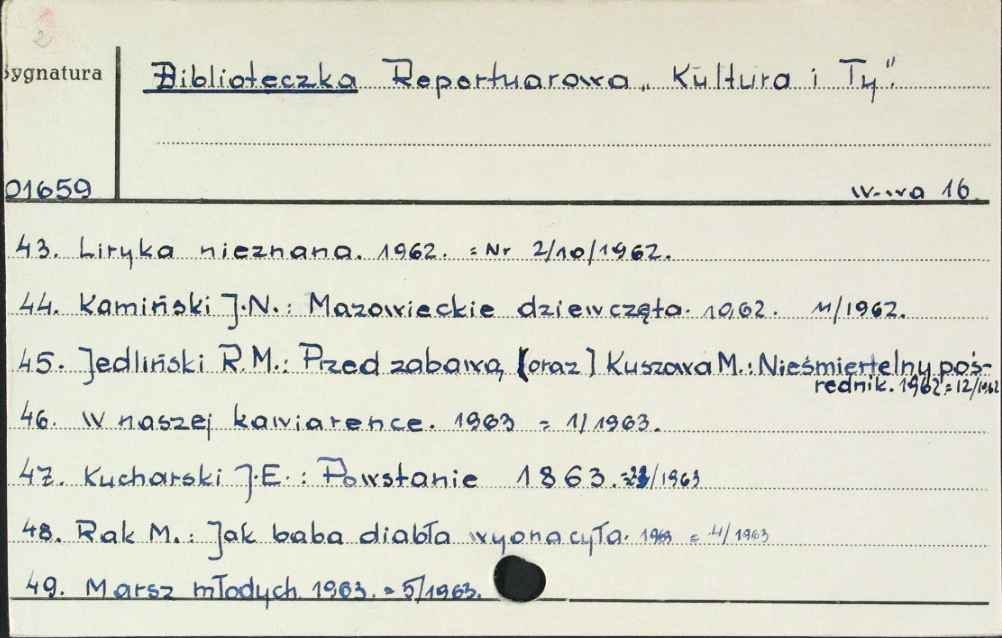 2
Sygnatura
Biblioteczka Repertuarowa „Kultura i Ty”.
01659
W-wa 16
43. Liryka nieznana. 1962. = Nr 2/10/1962.
44. Kamiński J.N.: Mazowieckie dziewczęta. 1962. 11/1962.
45. Jedliński R.M.: Przed zabawą [oraz] Kuszawa M.: Nieśmiertelny poś-
rednik. 1962 = 12/1962
46. W naszej kawiarence. 1963 = 1/1963.
47. Kucharski J.E.: Powstanie 1863. /1963
48. Rak M.: Jak baba diabła wyonacyła. 1963 = 4/1963
49. Marsz młodych 1963. = 5/1963.